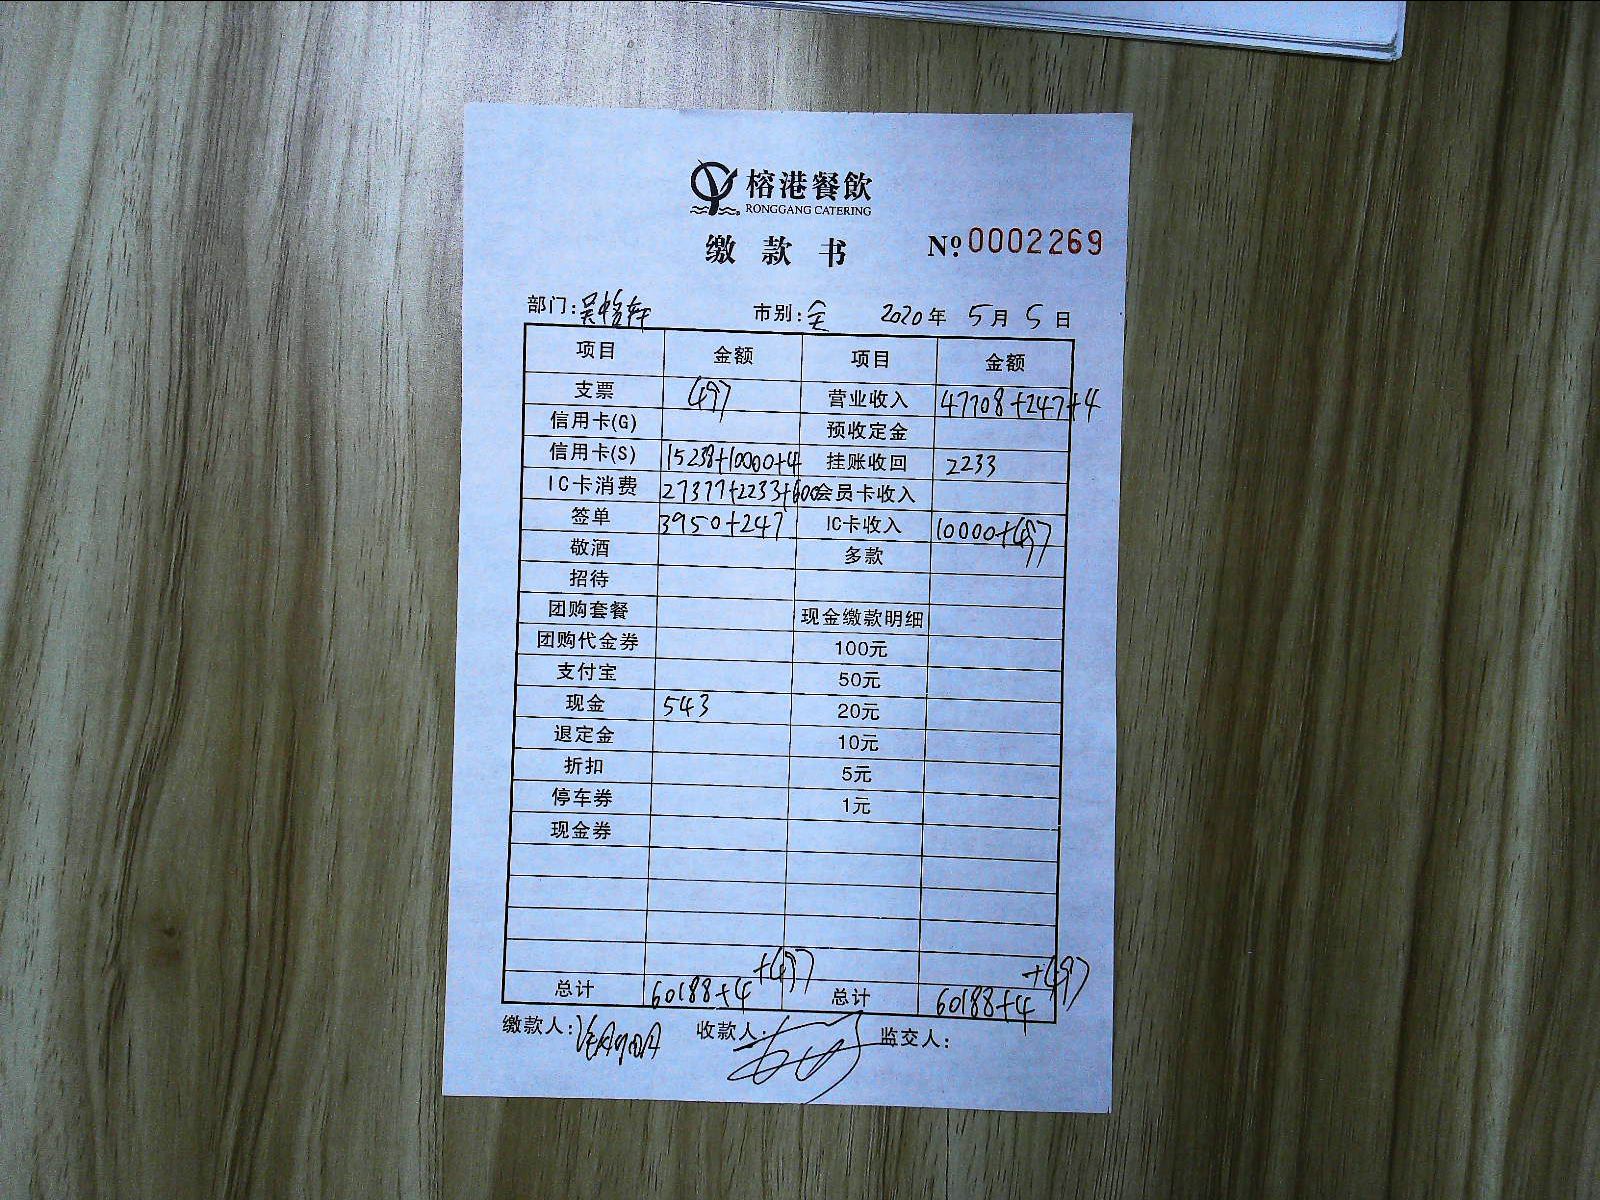 榕港餐飲
RONGGANG CATERING
缴款书 Nº 0002269
部门: 市别:全 2020年5月5日
项目 金额 项目 金额
支票 497 营业收入 47708+247+4
信用卡(G) 预收定金
信用卡(S) 15238+10000+4 挂账收回 2233
IC卡消费 27377+2233+600 会员卡收入
签单 3950+247 IC卡收入 10000+497
敬酒 多款
招待
团购套餐 现金缴款明细
团购代金券 100元
支付宝 50元
现金 543 20元
退定金 10元
折扣 5元
停车券 1元
现金券
总计 60188+4+497 总计 60188+4+497
缴款人: 收款人: 监交人: